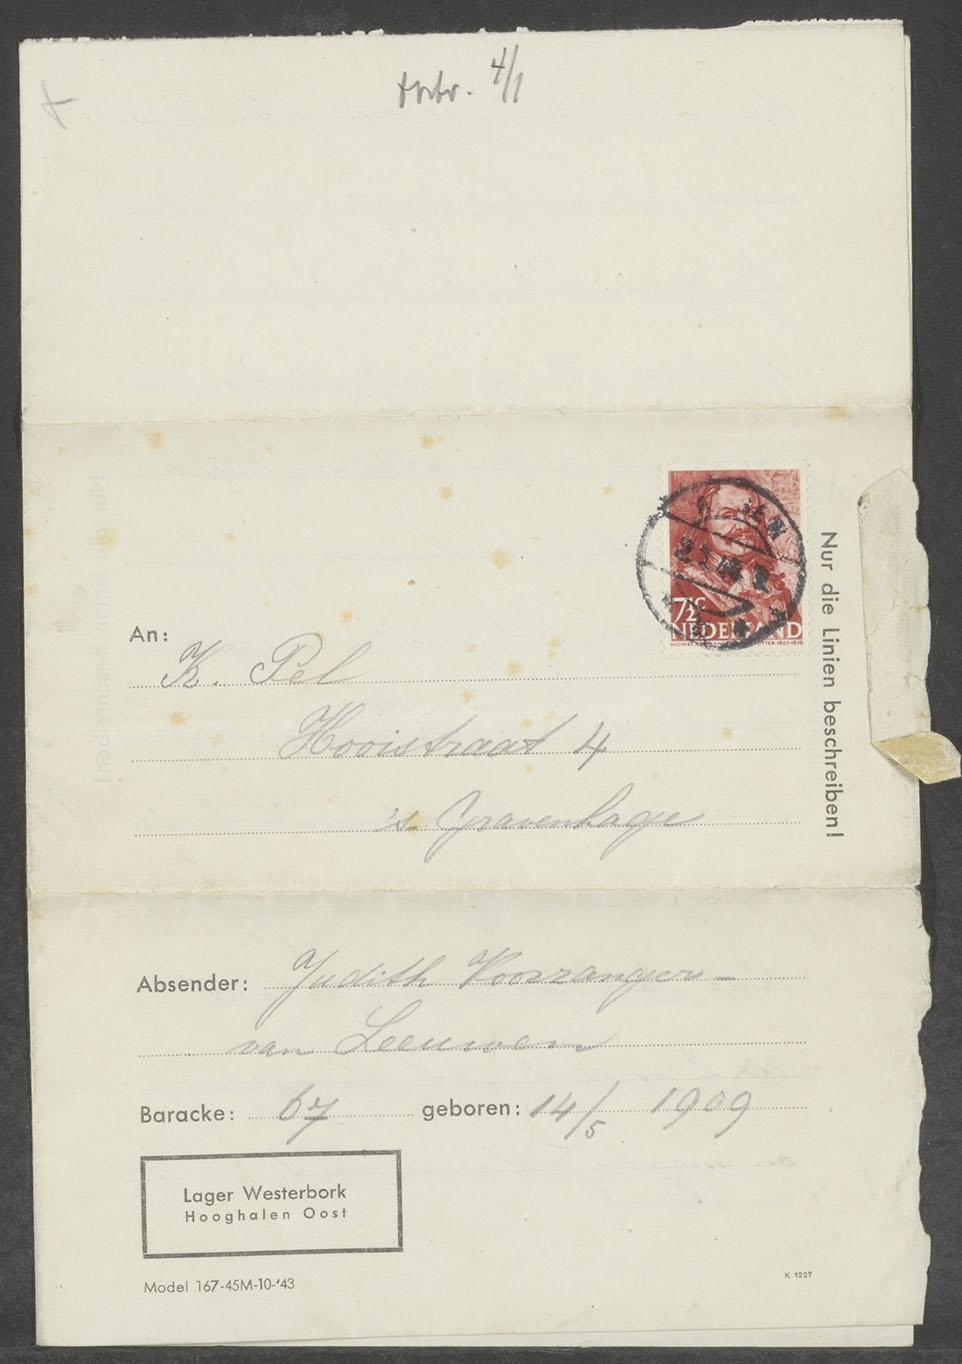 4/1
Nur die Linien beschreiben!
7½ c
NEDERLAND
An:
K. Pel
Hooistraat 4
's Gravenhage
Absender: Judith Voorzanger-
van Leeuwen
Baracke: 67 geboren: 14/5 1909
Lager Westerbork
Hooghalen Oost
Model 167-45M-10-'43
K 1227